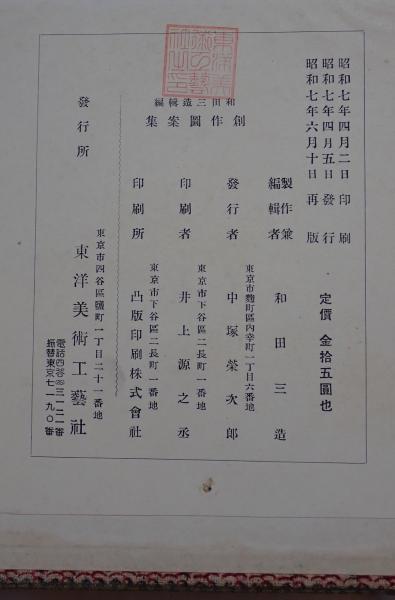 昭和七年四月二日印刷
昭和七年四月五日發行
昭和七年六月十日再版
定價 金拾五圓也
和田三造編輯
創作圖案集
製作兼編輯者 和田三造
東京市麴町區内幸町一丁目六番地
發行者 中塚榮次郎
東京市下谷區二長町一番地
印刷者 井上源之丞
東京市下谷區二長町一番地
印刷所 凸版印刷株式會社
東京市四谷區麴町一丁目二十一番地
發行所 東洋美術工藝社
電話四谷三一二一番
振替東京七一九〇番
東洋美術工藝社之印